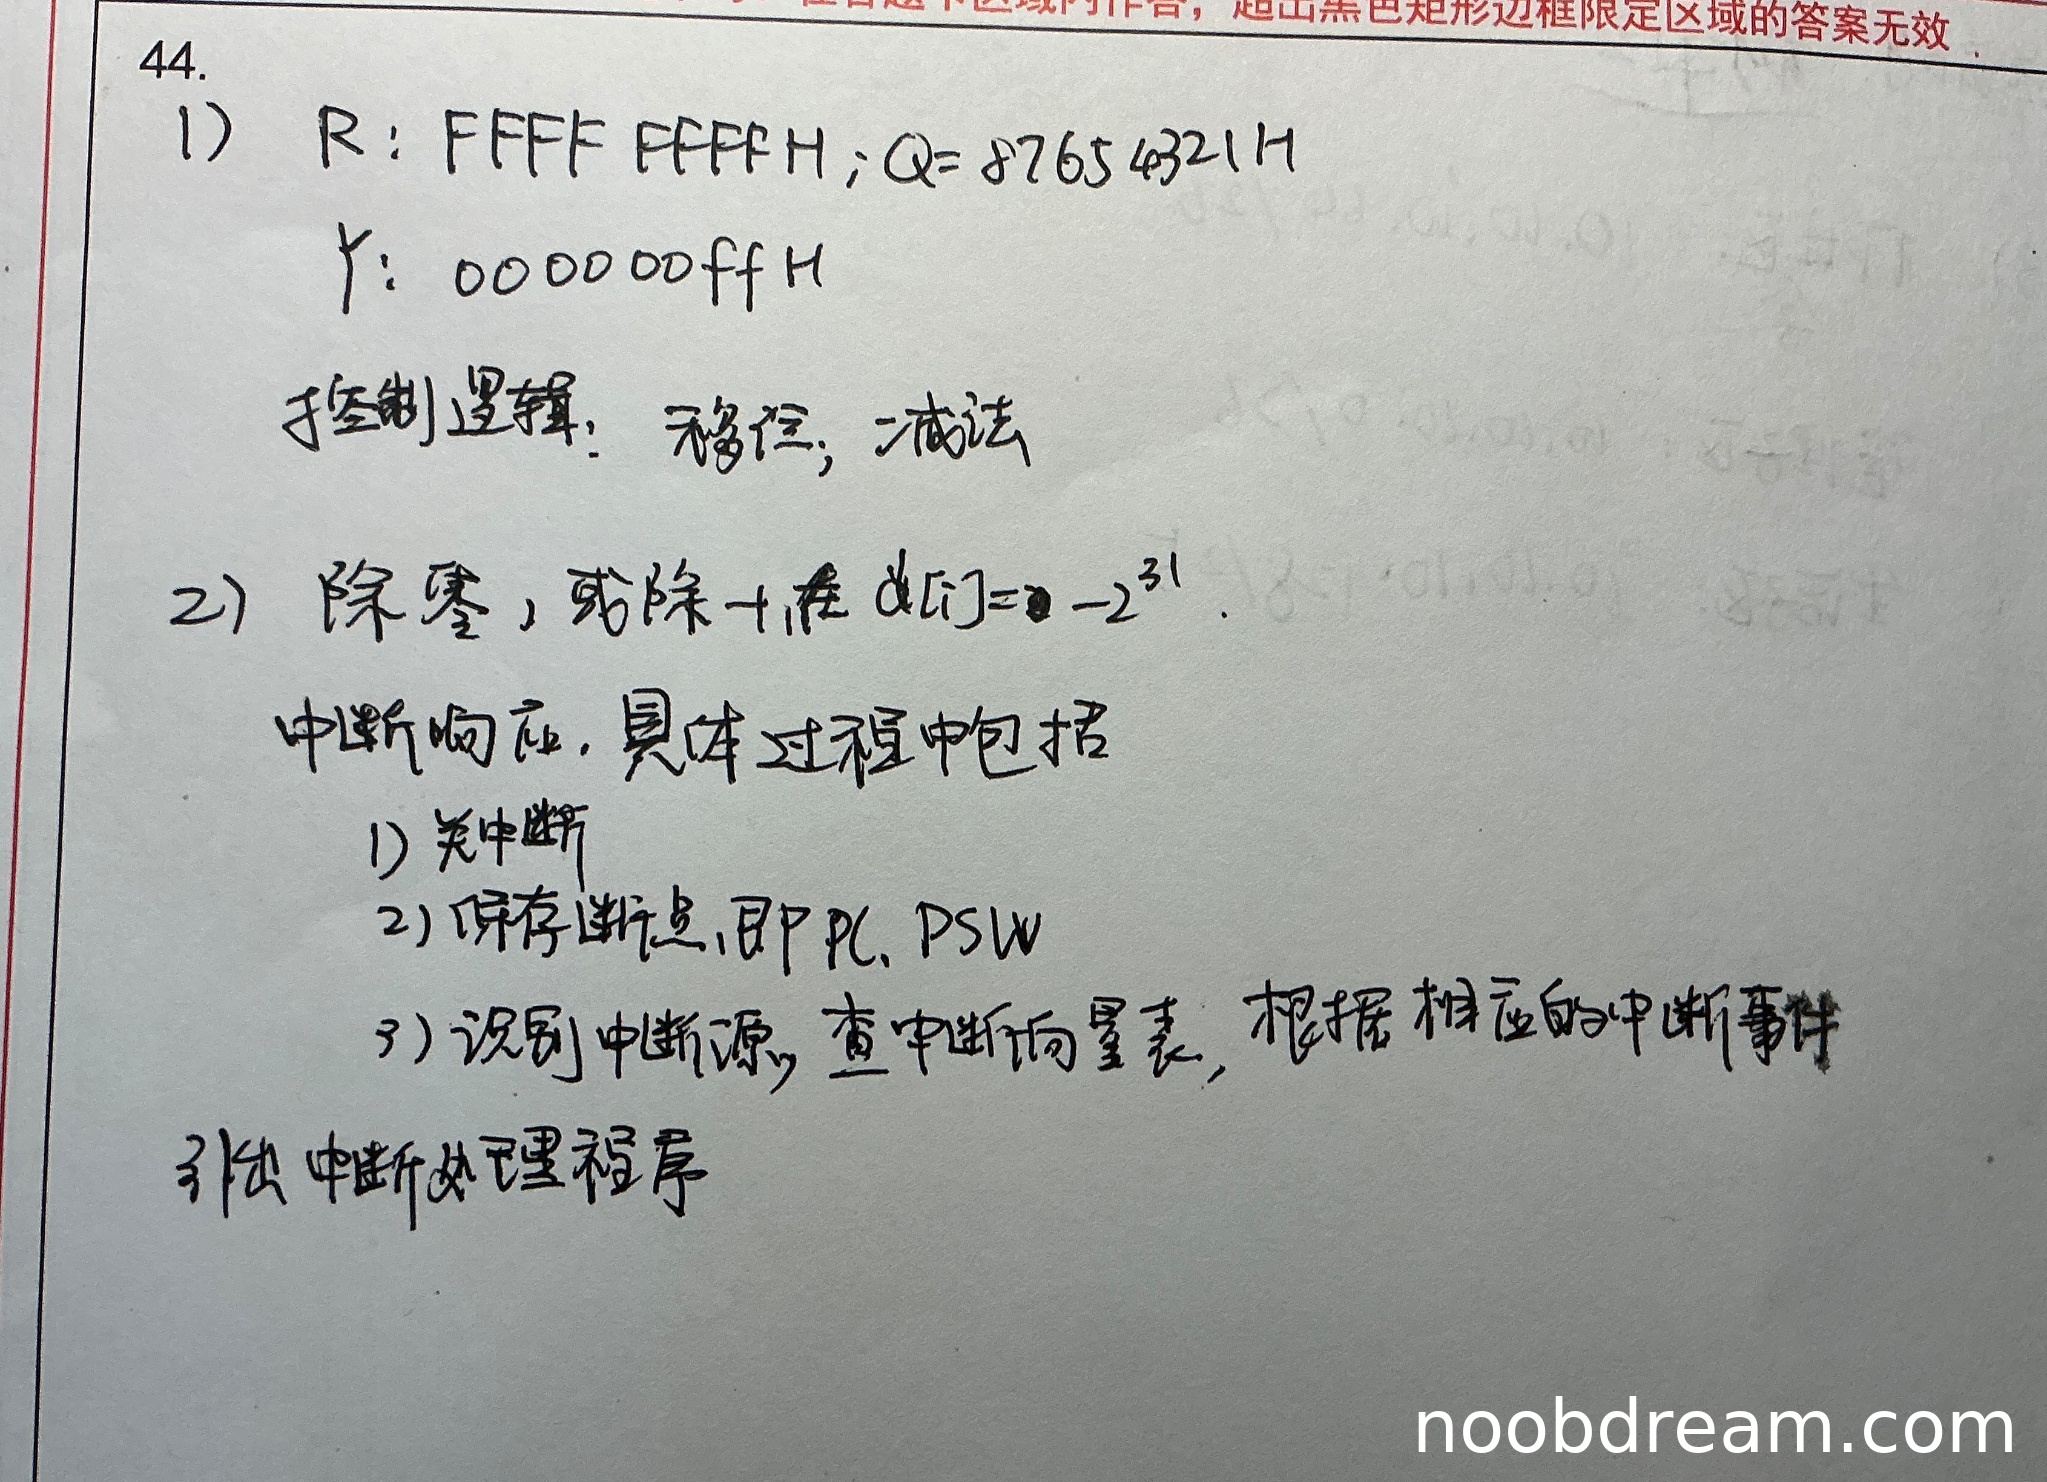 在答题卡区域内作答，超出黑色矩形边框限定区域的答案无效
44.
1) R: FFFF FFFFH; Q=87654321H
Y: 000000ffH
控制逻辑: 移位; 减法
2) 除零, 或除-1, 在 d[i]= -2^31.
中断响应. 具体过程中包括
1) 关中断
2) 保存断点, 即PC. PSW
3) 识别中断源, 查中断向量表, 根据相应的中断事件
引出中断处理程序
noobdream.com